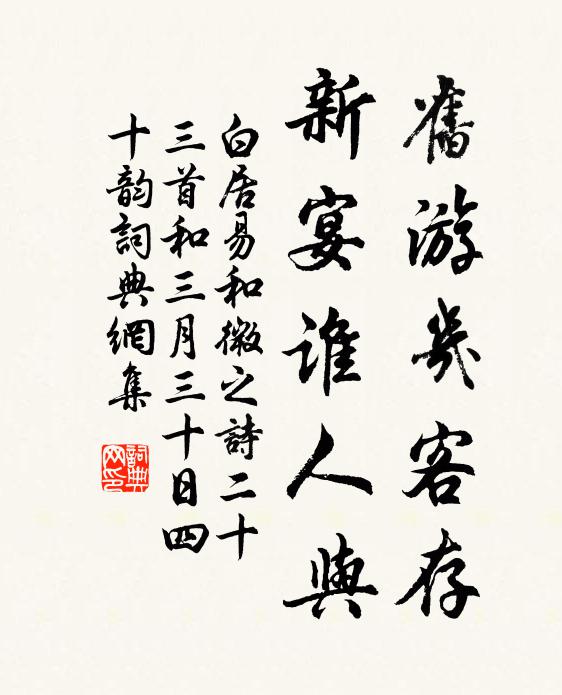 舊游幾客存
新宴誰人與
白居易和微之詩二十
三首和三月三十日四
十韵詞典網集
詞典
网印